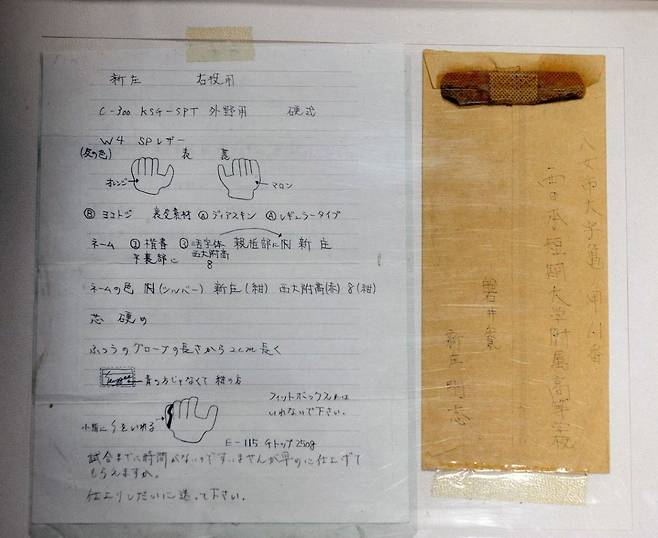 新庄 右投用
C-300 KSG-SPT 外野用 硬式
W4 SPレザー
(皮の色) 表 裏
オレンジ マロン
Ⓑ ヨコトジ 裏皮素材 Ⓐ ディアスキン Ⓐ レギュラータイプ
ネーム ① 楷書 ③ 活字体 親指部に 新庄
手裏部に 西大附高
8
ネームの色 (シルバー) 新庄(紺) 西大附高(赤) 8(紺)
芯 硬め
ふつうのグローブの長さから2cm長く
青の方じゃなくて紺の方
フィットボックスは
いれないで下さい。
小指に を入れる
E-115 チトップ250g
試合までに時間がないのですいませんが早めに仕上げて
もらえますか。
仕上りしだいに送って下さい。
八女市大字亀甲 番
西日本短期大学附属高等学校
新庄剛志